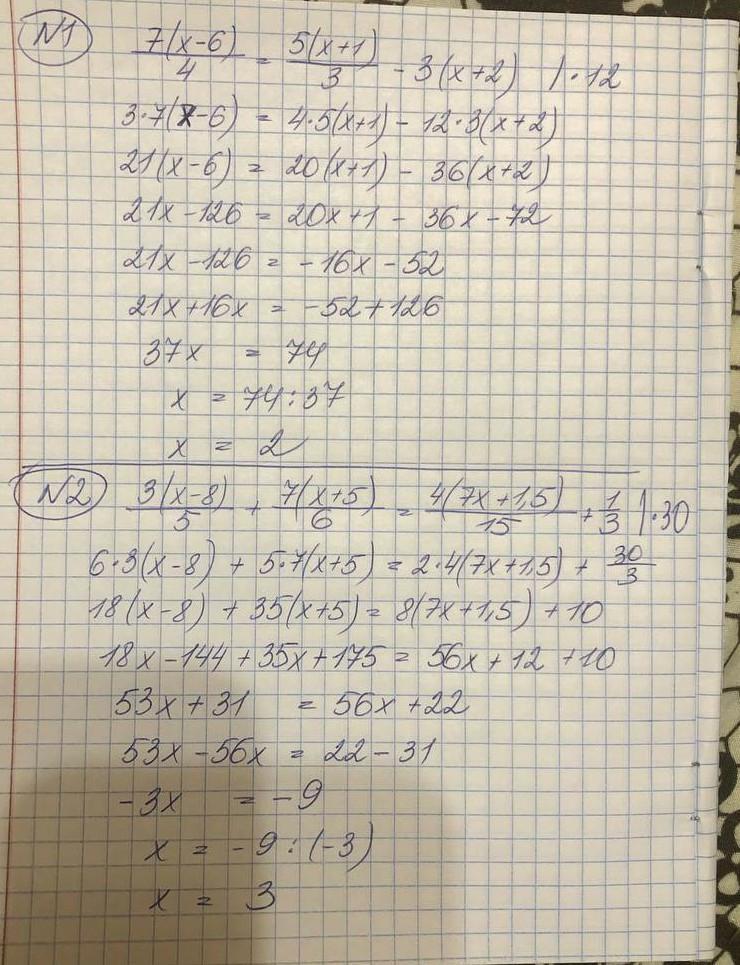 N1
7(x-6)/4 = 5(x+1)/3 - 3(x+2) |·12
3·7(x-6) = 4·5(x+1) - 12·3(x+2)
21(x-6) = 20(x+1) - 36(x+2)
21x-126 = 20x+1 - 36x-72
21x-126 = -16x-52
21x+16x = -52+126
37x = 74
x = 74:37
x = 2
N2 3(x-8)/5 + 7(x+5)/6 = 4(7x+1,5)/15 + 1/3 |·30
6·3(x-8) + 5·7(x+5) = 2·4(7x+1,5) + 30/3
18(x-8) + 35(x+5) = 8(7x+1,5) + 10
18x-144+35x+175 = 56x+12+10
53x+31 = 56x+22
53x-56x = 22-31
-3x = -9
x = -9:(-3)
x = 3